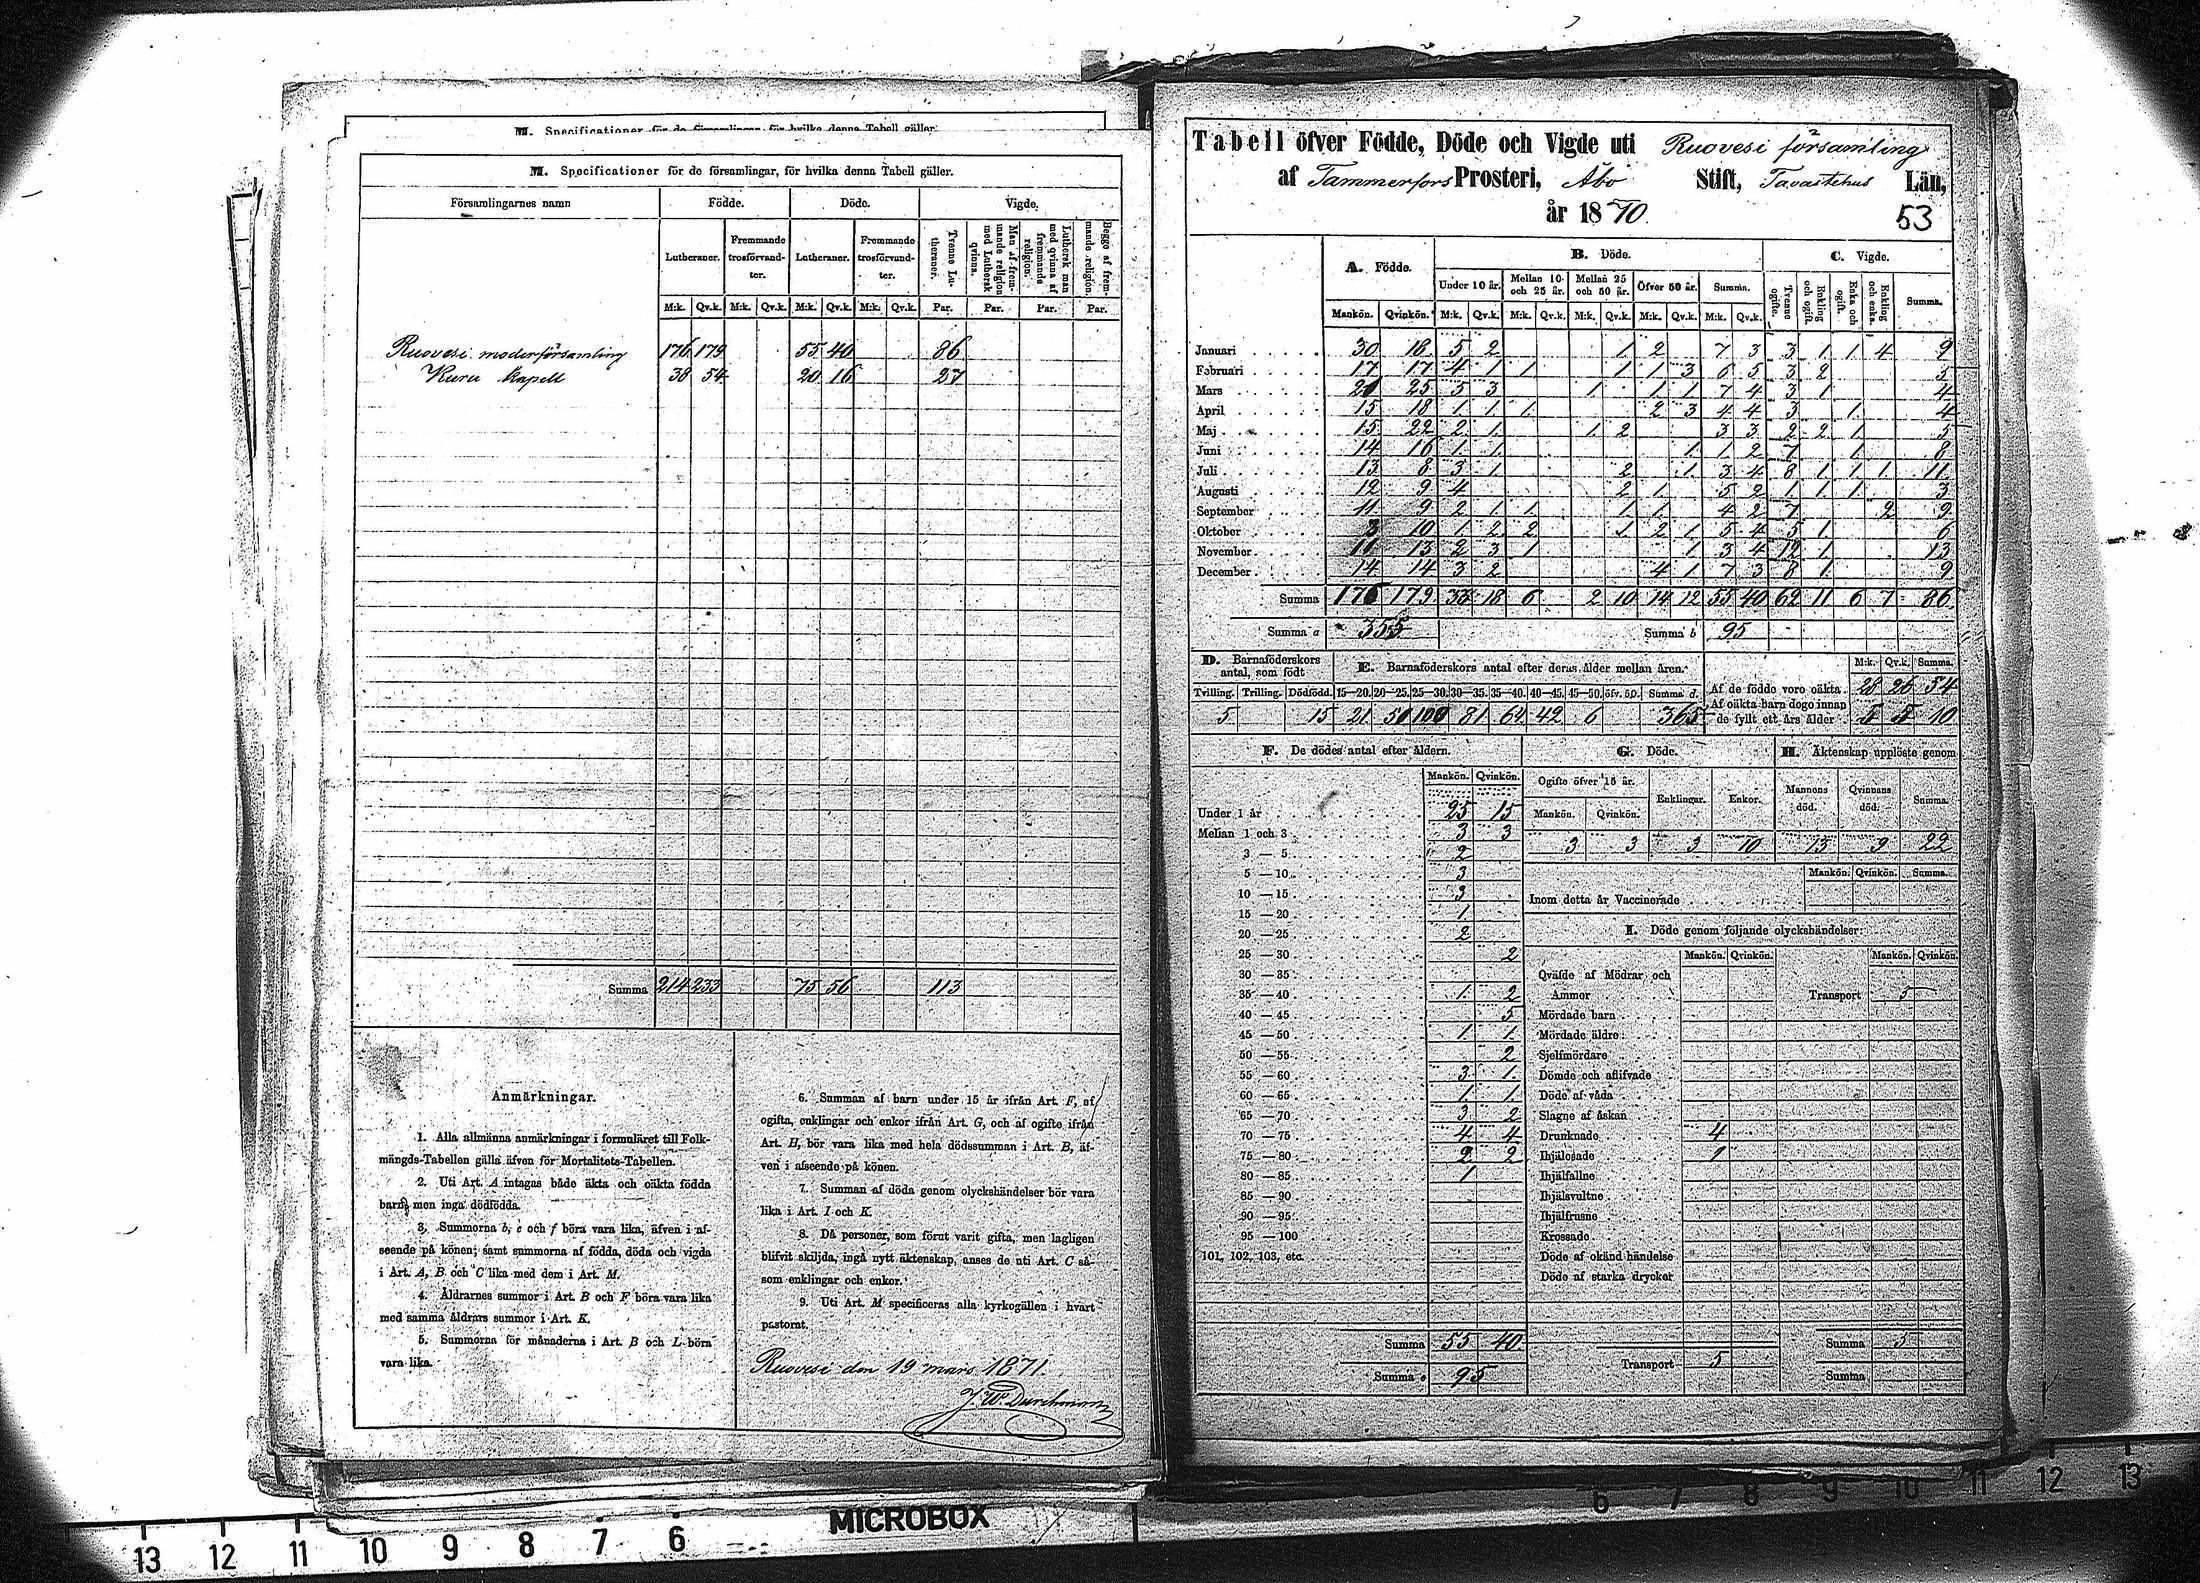 M. Specificationer för de församlingar, för hvilka denna Tabell gäller.
M. Specificationer för de församlingar, för hvilka denna Tabell gäller.
Församlingarnes namn Födde. Döde. Vigde.
Lutheraner. Fremmande trosförvandter. Lutheraner. Fremmande trosförvandter. Trenne Lutheraner. Man af fremmande religion med Luthersk qvinna. Luthersk man med qvinna af fremmande religion. Begge af fremmande religion.
M:k. Qv.k. M:k. Qv.k. M:k. Qv.k. M:k. Qv.k. Par. Par. Par. Par.
Ruovesi moderförsamling 176 179 55 40 86
Kuru kapell 38 54 20 16 27
Summa 214 233 75 56 113
Anmärkningar.
1. Alla allmänna anmärkningar i formuläret till Folk-
mängds-Tabellen gälla äfven för Mortalitets-Tabellen.
2. Uti Art. A intagas både äkta och oäkta födda
barn, men inga dödfödda.
3. Summorna b, c och f böra vara lika, äfven i af-
seende på könen; samt summorna af födda, döda och vigda
i Art. A, B och C lika med dem i Art. M.
4. Åldrarnes summor i Art. B och F böra vara lika
med samma åldrars summor i Art. K.
5. Summorna för månaderna i Art. B och L böra
vara lika.
6. Summan af barn under 15 år ifrån Art. F, af
ogifta, enklingar och enkor ifrån Art. G, och af ogifte ifrån
Art. H, bör vara lika med hela dödssumman i Art. B, äf-
ven i afseende på könen.
7. Summan af döda genom olyckshändelser bör vara
lika i Art. I och K.
8. Då personer, som förut varit gifta, men lagligen
blifvit skiljda, ingå nytt äktenskap, anses de uti Art. C så-
som enklingar och enkor.
9. Uti Art. M specificeras alla kyrkogällen i hvart
pastorat.
Ruovesi den 19 mars 1871.
J. W. Durchman
Tabell öfver Födde, Döde och Vigde uti Ruovesi församling
af Tammerfors Prosteri, Åbo Stift, Tavastehus Län,
år 1870.
53
A. Födde. B. Döde. C. Vigde.
Under 10 år. Mellan 10 och 25 år. Mellan 25 och 50 år. Öfver 50 år. Summa. Trenne ogifte. Enkling och ogift. Enka och ogift. Enkling och enka. Summa.
Mankön. Qvinkön. M:k. Qv.k. M:k. Qv.k. M:k. Qv.k. M:k. Qv.k. M:k. Qv.k.
Januari 30 18 5 2 1 2 7 3 3 1 1 4 9
Februari 17 17 4 1 1 1 1 3 6 5 3 2 5
Mars 25 5 3 1 1 1 7 4 3 1 4
April 15 18 1 1 1 2 3 4 4 3 1 4
Maj 15 22 2 1 1 2 3 3 2 2 1 5
Juni 14 16 1 1 1 1 2 7 1 8
Juli 13 8 3 1 2 1 3 4 8 1 1 1 11
Augusti 12 9 4 2 1 5 2 1 1 1 3
September 11 9 2 1 1 1 1 4 2 7 2 9
Oktober 3 10 1 2 2 1 2 1 5 4 5 1 6
November 11 13 2 3 1 1 3 4 12 1 13
December 14 14 3 2 4 1 7 3 8 1 9
Summa 176 179 33 18 6 2 10 14 12 55 40 62 11 6 7 86
Summa a 355 Summa b 95
D. Barnaföderskors antal, som födt E. Barnaföderskors antal efter deras ålder mellan åren. M:k. Qv.k. Summa.
Tvilling. Trilling. Dödfödd. 15—20. 20—25. 25—30. 30—35. 35—40. 40—45. 45—50. öfv. 50. Summa d. Af de födde voro oäkta 28 26 54
5 15 21 50 100 81 64 42 6 365 Af oäkta barn dogo innan de fyllt ett års ålder 5 5 10
F. De dödes antal efter åldern. G. Döde. H. Äktenskap upplöste genom
Mankön. Qvinkön. Ogifte öfver 15 år. Enklingar. Enkor. Mannens död. Qvinnans död. Summa.
Mankön. Qvinkön.
3 3 3 10 13 9 22
Under 1 år 25 15
Mellan 1 och 3 3 3
3 — 5 2
5 — 10 3
10 — 15 3
15 — 20 1
20 — 25 2
25 — 30 2
30 — 35
35 — 40 1 2
40 — 45 5
45 — 50 1 1
50 — 55 2
55 — 60 3 1
60 — 65 1 1
65 — 70 3 2
70 — 75 4 4
75 — 80 2 2
80 — 85 1
85 — 90
90 — 95
95 — 100
101, 102, 103, etc
Summa 55 40
Summa 95
Mankön. Qvinkön. Summa.
Inom detta år Vaccinerade
I. Döde genom följande olyckshändelser:
Mankön. Qvinkön. Mankön. Qvinkön.
Qväfde af Mödrar och
Ammor Transport 5
Mördade barn
Mördade äldre
Sjelfmördare
Dömde och aflifvade
Döde af våda
Slagne af åskan
Drunknade 4
Ihjälosade 1
Ihjälfallne
Ihjälsvultne
Ihjälfrusne
Krossade
Döde af okänd händelse
Döde af starka drycker
Summa 5
Transport 5 Summa
MICROBOX
13 12 11 10 9 8 7 6
6 7 8 9 10 11 12 13